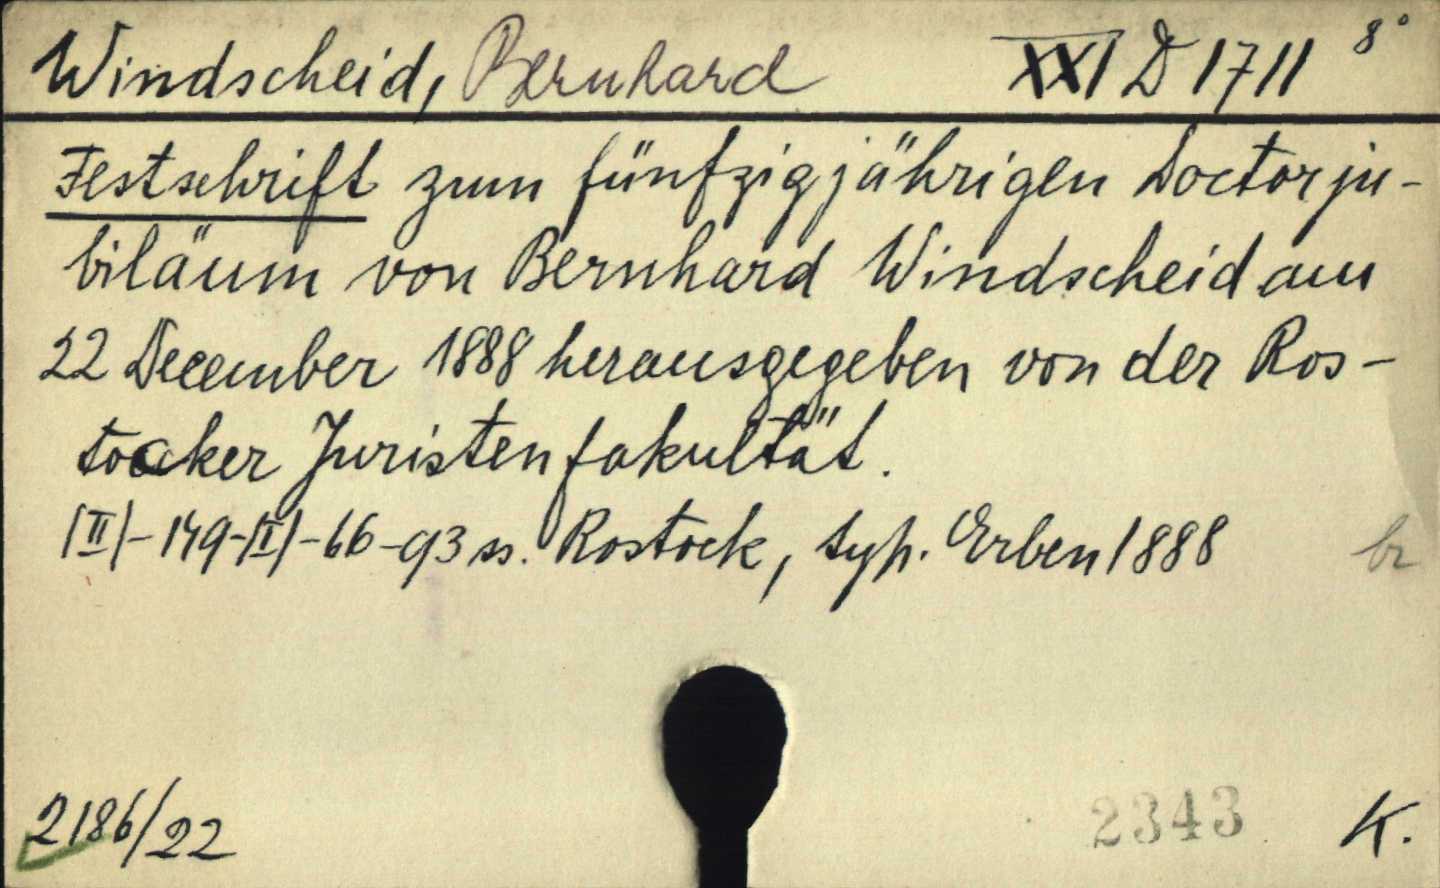 Windscheid, Bernhard XXI D 1711 8°
Festschrift zum fünfzigjährigen Doctorju-
biläum von Bernhard Windscheid am
22 December 1888 herausgegeben von der Ros-
tocker Juristenfakultät.
(II)-149-(I)-66-93 ss. Rostock, typ. Erben 1888
br
2186/22
2343
K.